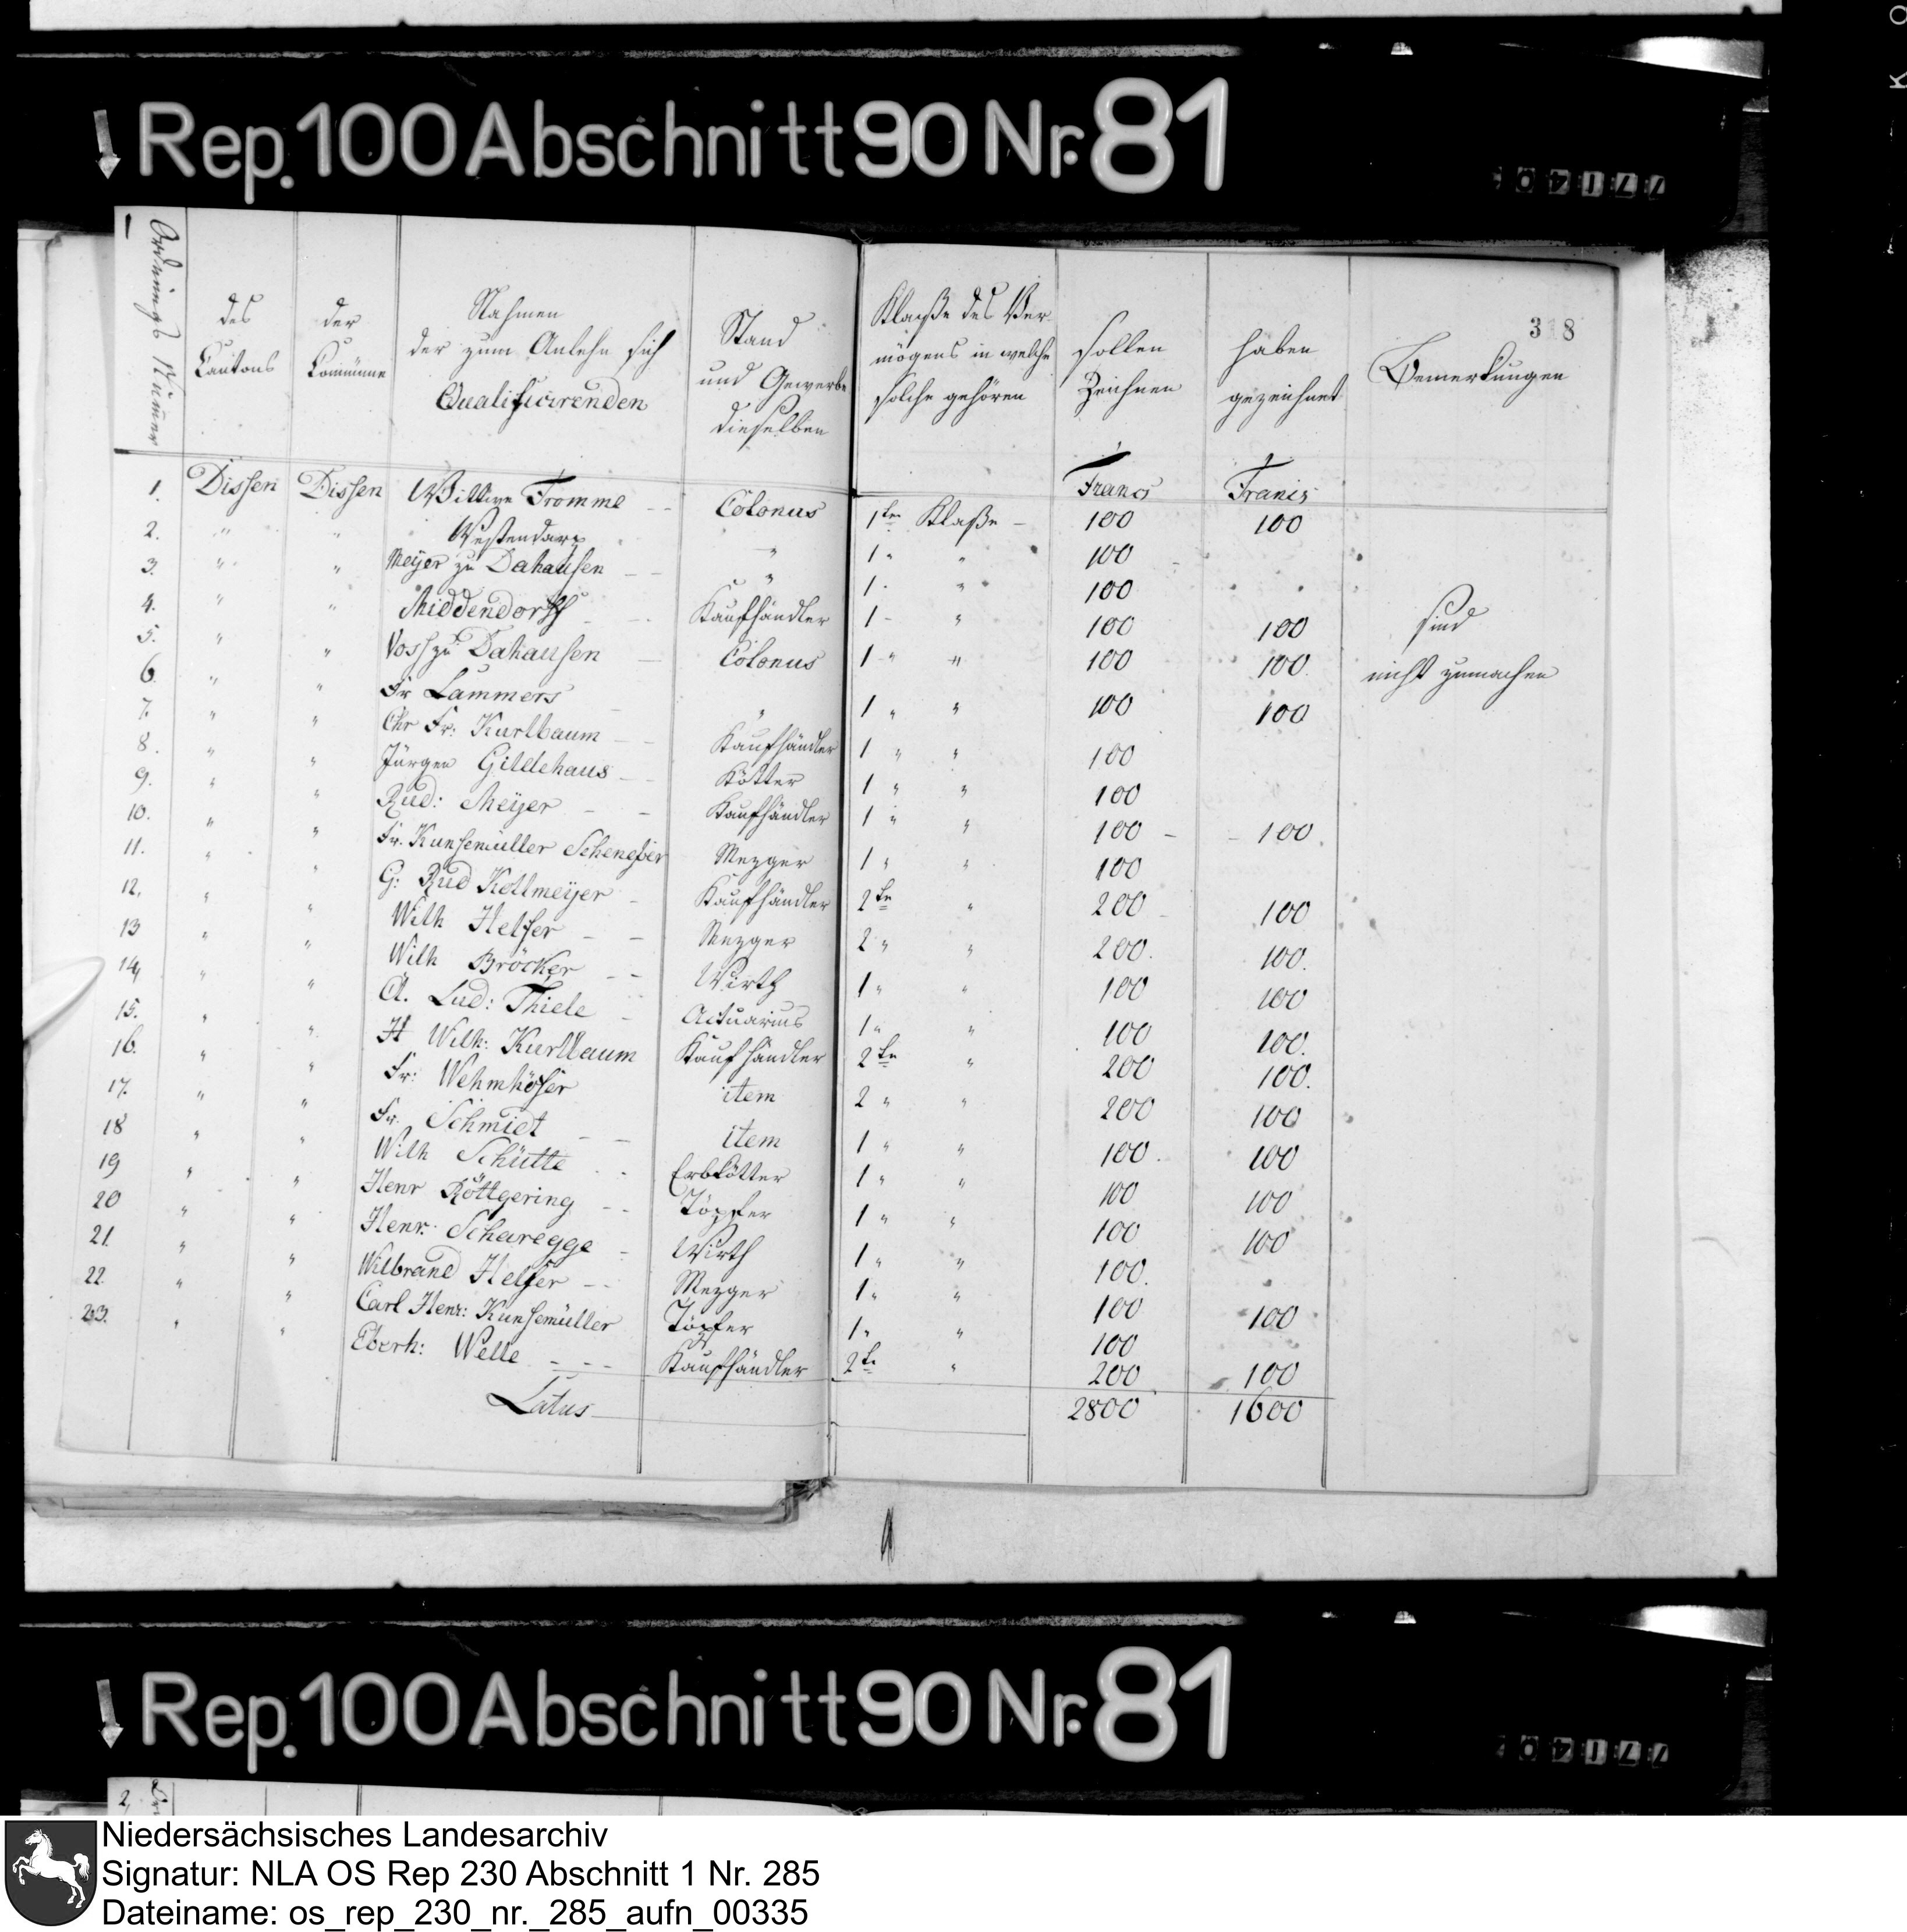 Rep. 100 Abschnitt 90 Nr. 81
1
318
Ordnungs Nummer
des Cantons
der Commune
Nahmen der zum Anlehn sich Qualificirenden
Stand und Gewerbe dieselben
Klaße des Vermögens in welche solche gehören
sollen Zeichnen
haben gezeichnet
Bemerkungen
Francs Francs
1. Dissen Dissen Wittwe Fromme Colonus 1te Klaße 100 100
2. " " Westendarp " 1 " 100
3. " " Meyer zu Dahausen " 1 " 100
4. " " Middendorff Kaufhändler 1 " 100 100
5. " " Voss zu Dahausen Colonus 1 " " 100 100
6. " " Fr Lammers " 1 " " 100 100
7. " " Chr Fr: Kurlbaum Kaufhändler 1 " " 100
8. " " Jürgen Gildehaus Kötter 1 " " 100
9. " " Rud: Meyer Kaufhändler 1 " " 100 100
10. " " Fr. Kunsemüller Mezger 1 " " 100
11. " " G: Rud Kellmeyer Kaufhändler 2te " 200 100
12. " " Wilh Helfer Mezger 2 " " 200. 100.
13 " " Wilh Bröcker Wirth 1 " " 100 100
14, " " A. Lud: Thiele Actuarius 1 " " 100 100.
15. " " H Wilh: Kurlbaum Kaufhändler 2te " 200 100.
16. " " Fr: Wehmhöfer item 2 " " 200 100
17. " " Fr. Schmidt item 1 " " 100. 100
18 " " Wilh Schütte Erbkötter 1 " " 100 100
19 " " Henr Röttgering Töpfer 1 " " 100 100
20 " " Henr: Scharegge Wirth 1 " " 100.
21. " " Wilbrand Helfer Mezger 1 " " 100 100
22. " " Carl Henr: Kunsemüller Töpfer 1 " " 100
23. " " Eberh: Welle Kaufhändler 2te " 200 100
sind
nicht zumachen
Latus 2800 1600
Rep. 100 Abschnitt 90 Nr. 81
2,
Niedersächsisches Landesarchiv
Signatur: NLA OS Rep 230 Abschnitt 1 Nr. 285
Dateiname: os_rep_230_nr._285_aufn_00335